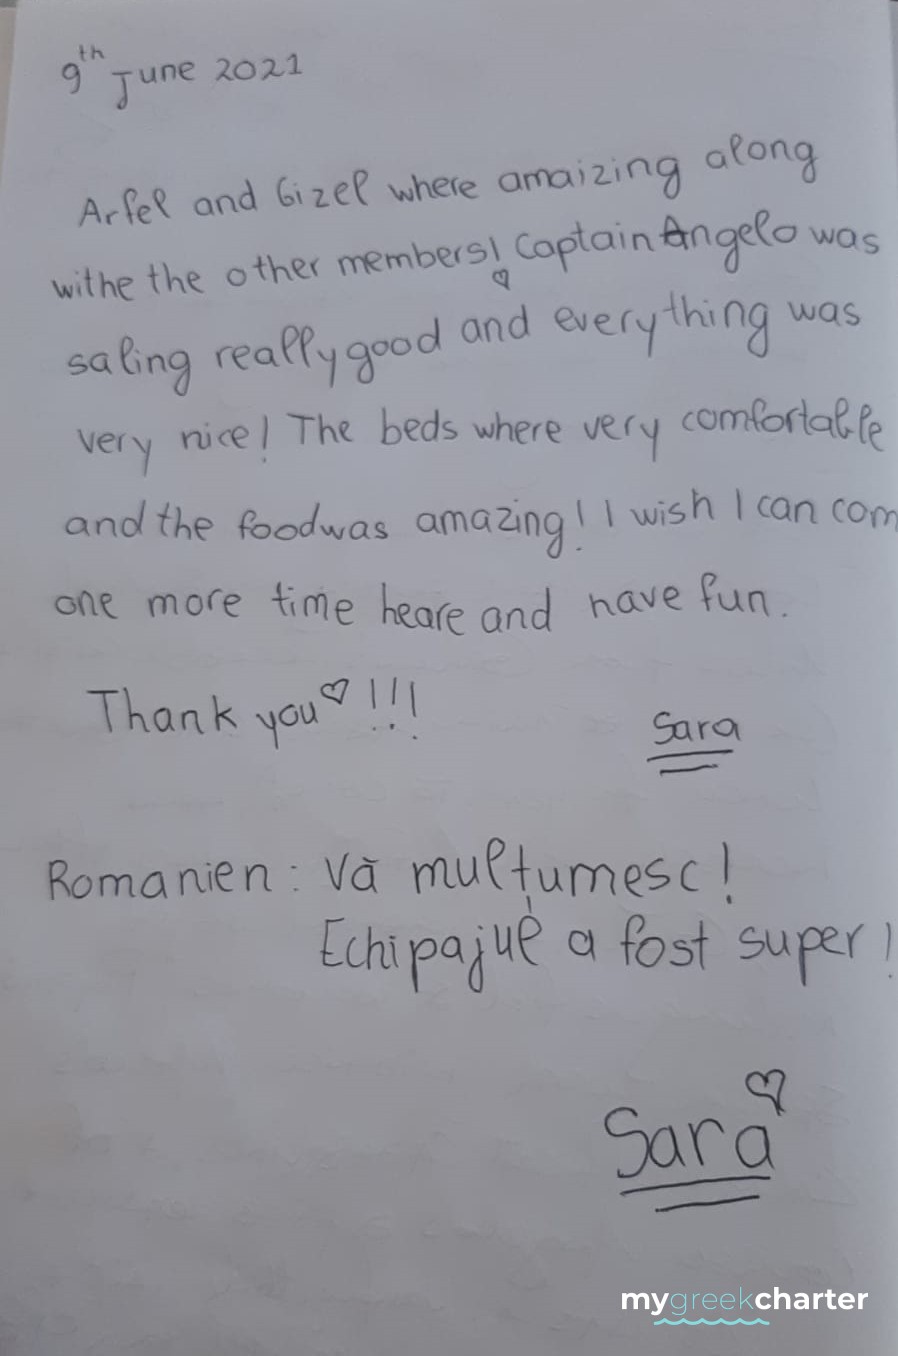 9th June 2021
Arfel and Gizel where amaizing along
withe the other members! Captain Angelo was
saling really good and everything was
very nice! The beds where very comfortable
and the food was amazing! I wish I can com
one more time heare and have fun.
Thank you♡!!!
Sara
Romanien: Vă mulțumesc!
Echipajul a fost super!
Sara♡
mygreekcharter